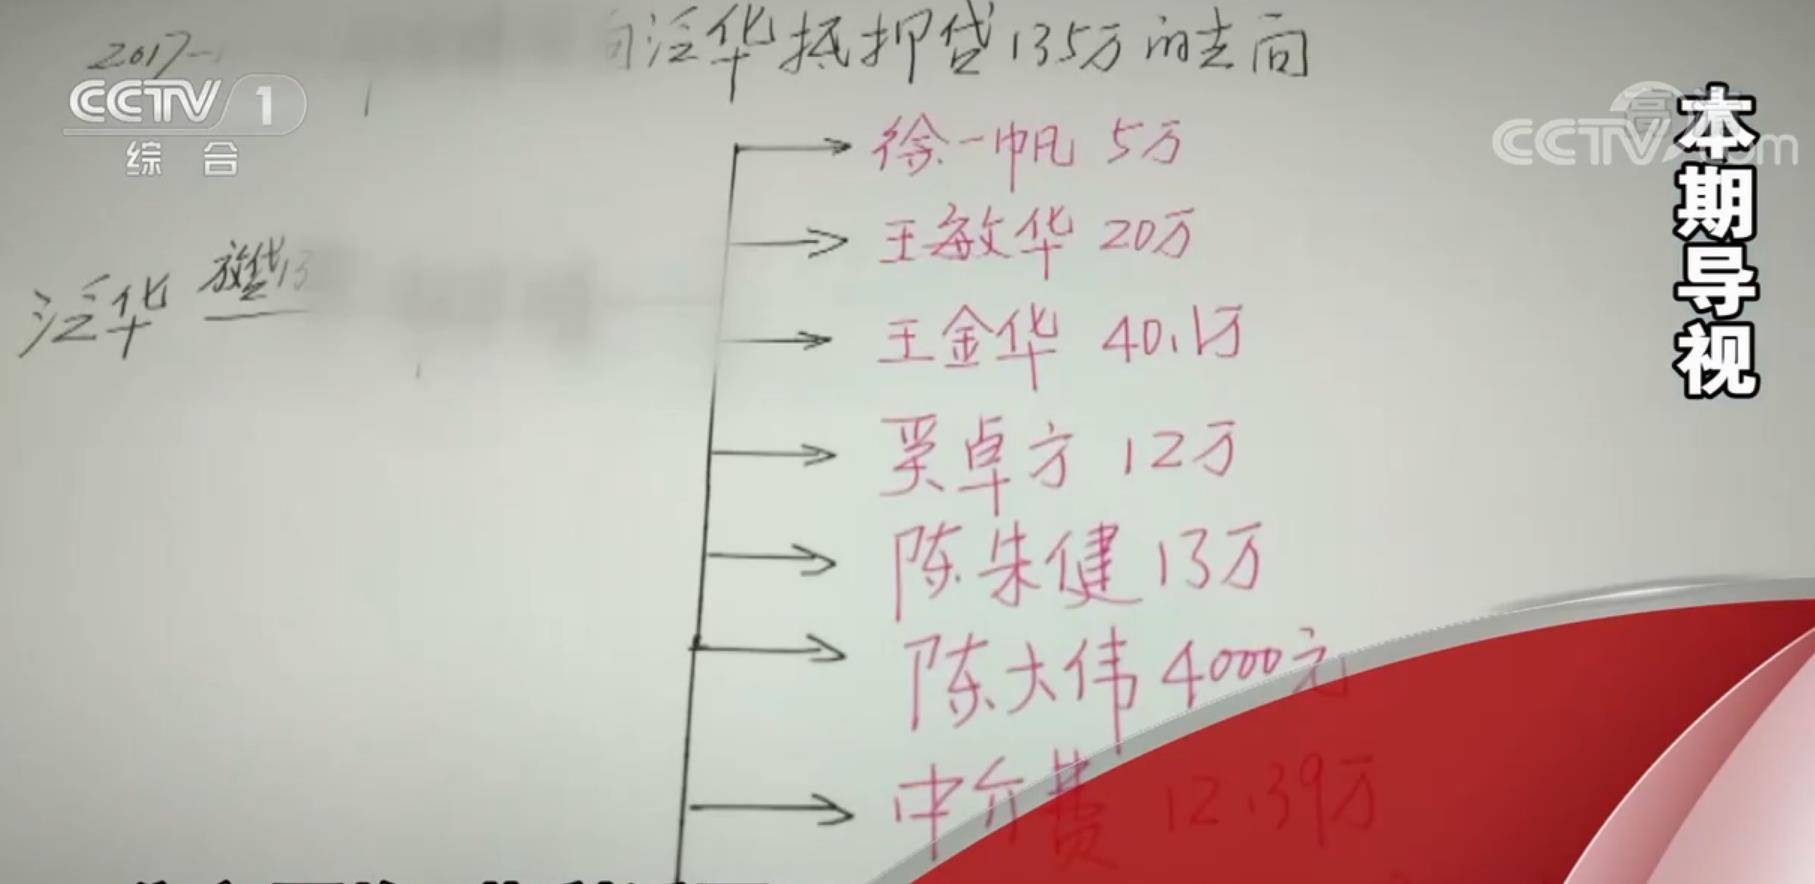 2017-
向泛华抵押贷135万的去向
CCTV 1
综合
CCTV.com
本期导视
徐一帆 5万
王敏华 20万
泛华 放贷13
王金华 40.1万
吴卓方 12万
陈朱健 13万
陈大伟 4000元
中介费 12.39万